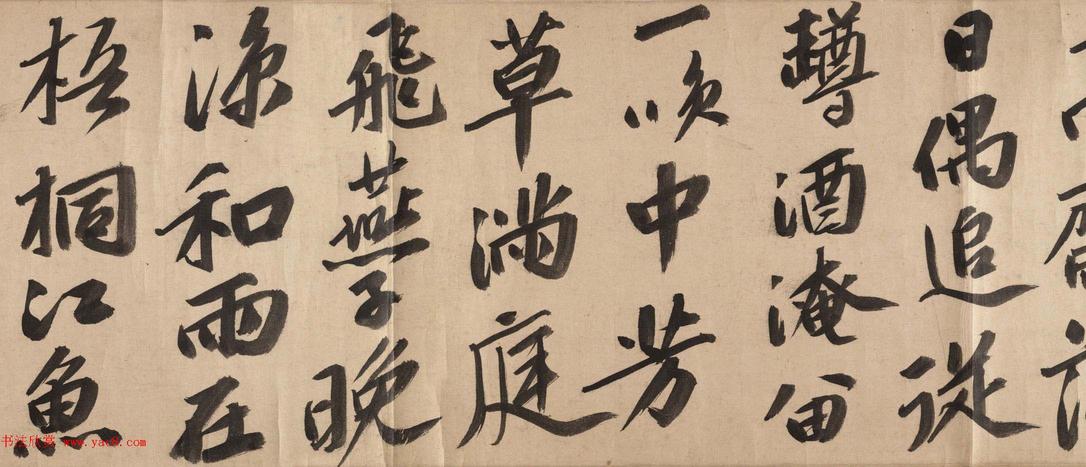 日偶追從
罇酒淹留
一咲中芳
草滿庭
飛燕子晚
涼和雨在
梧桐江魚
书法欣赏 www.yac8.com